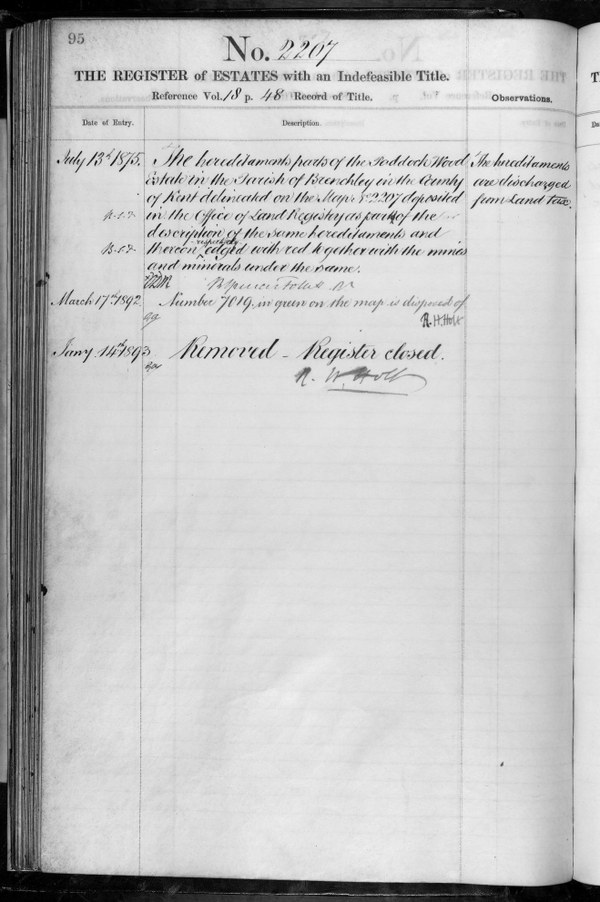 95
No. 2207
THE REGISTER of ESTATES with an Indefeasible Title.
Reference Vol. 18 p. 48 Record of Title.
Observations.
Date of Entry.
Description.
July 13th 1875.
The hereditaments parts of the Paddock Wood
Estate in the Parish of Brenchley in the County
of Kent delineated on the Map 2207 deposited
in the Office of Land Registry as part of the
description of the same hereditaments and
thereon respectively edged with red together with the mines
and minerals under the same.
The hereditaments
are discharged
from Land Tax.
March 17th 1892
Number 7019, in green on the map is disposed of
R. H. Holt
Jany. 14th 1893
Removed - Register closed.
R. H. Holt